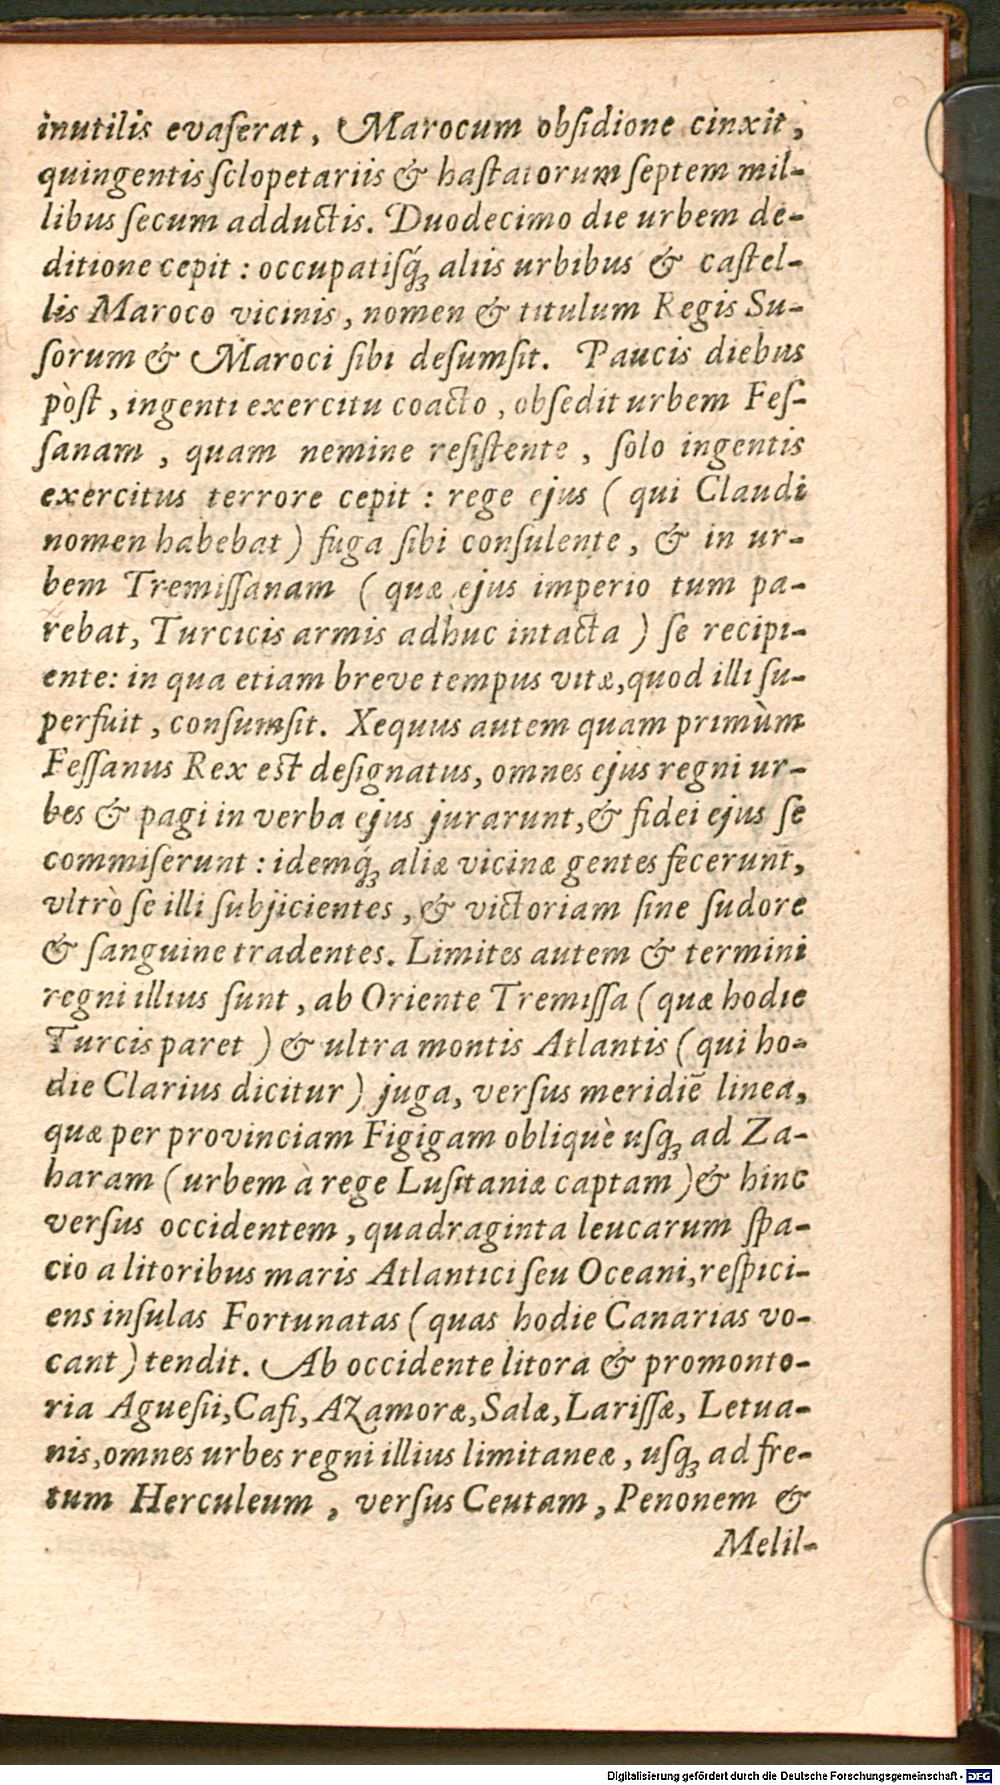 inutilis evaſerat, Marocum obſidione cinxit,
quingentis ſclopetariis & haſtatorum ſeptem mil-
libus ſecum adductis. Duodecimo die urbem de-
ditione cepit: occupatiſq́ꝫ aliis urbibus & caſtel-
lis Maroco vicinis, nomen & titulum Regis Su-
ſorum & Maroci ſibi deſumſit. Paucis diebus
pòſt, ingenti exercitu coacto, obſedit urbem Feſ-
ſanam, quam nemine reſiſtente, ſolo ingentis
exercitus terrore cepit: rege ejus (qui Claudi
nomen habebat) fuga ſibi conſulente, & in ur-
bem Tremiſſanam (quæ ejus imperio tum pa-
rebat, Turcicis armis adhuc intacta) ſe recipi-
ente: in qua etiam breve tempus vitæ, quod illi ſu-
perfuit, conſumſit. Xequus autem quam primùm
Feſſanus Rex eſt deſignatus, omnes ejus regni ur-
bes & pagi in verba ejus jurarunt, & fidei ejus ſe
commiſerunt: idemq́ꝫ aliæ vicinæ gentes fecerunt,
vltrò ſe illi ſubjicientes, & victoriam ſine ſudore
& ſanguine tradentes. Limites autem & termini
regni illius ſunt, ab Oriente Tremiſſa (quæ hodie
Turcis paret) & ultra montis Atlantis (qui ho-
die Clarius dicitur) juga, verſus meridiē linea,
quæ per provinciam Figigam obliquè uſqꝫ ad Za-
haram (urbem à rege Luſitaniæ captam) & hinc
verſus occidentem, quadraginta leucarum ſpa-
cio a litoribus maris Atlantici ſeu Oceani, reſpici-
ens inſulas Fortunatas (quas hodie Canarias vo-
cant) tendit. Ab occidente litora & promonto-
ria Agueſii, Cafi, Azamoræ, Salæ, Lariſſæ, Letua-
nis, omnes urbes regni illius limitaneæ, uſqꝫ ad fre-
tum Herculeum, verſus Ceutam, Penonem &
Melil-
Digitalisierung gefördert durch die Deutsche Forschungsgemeinschaft - DFG